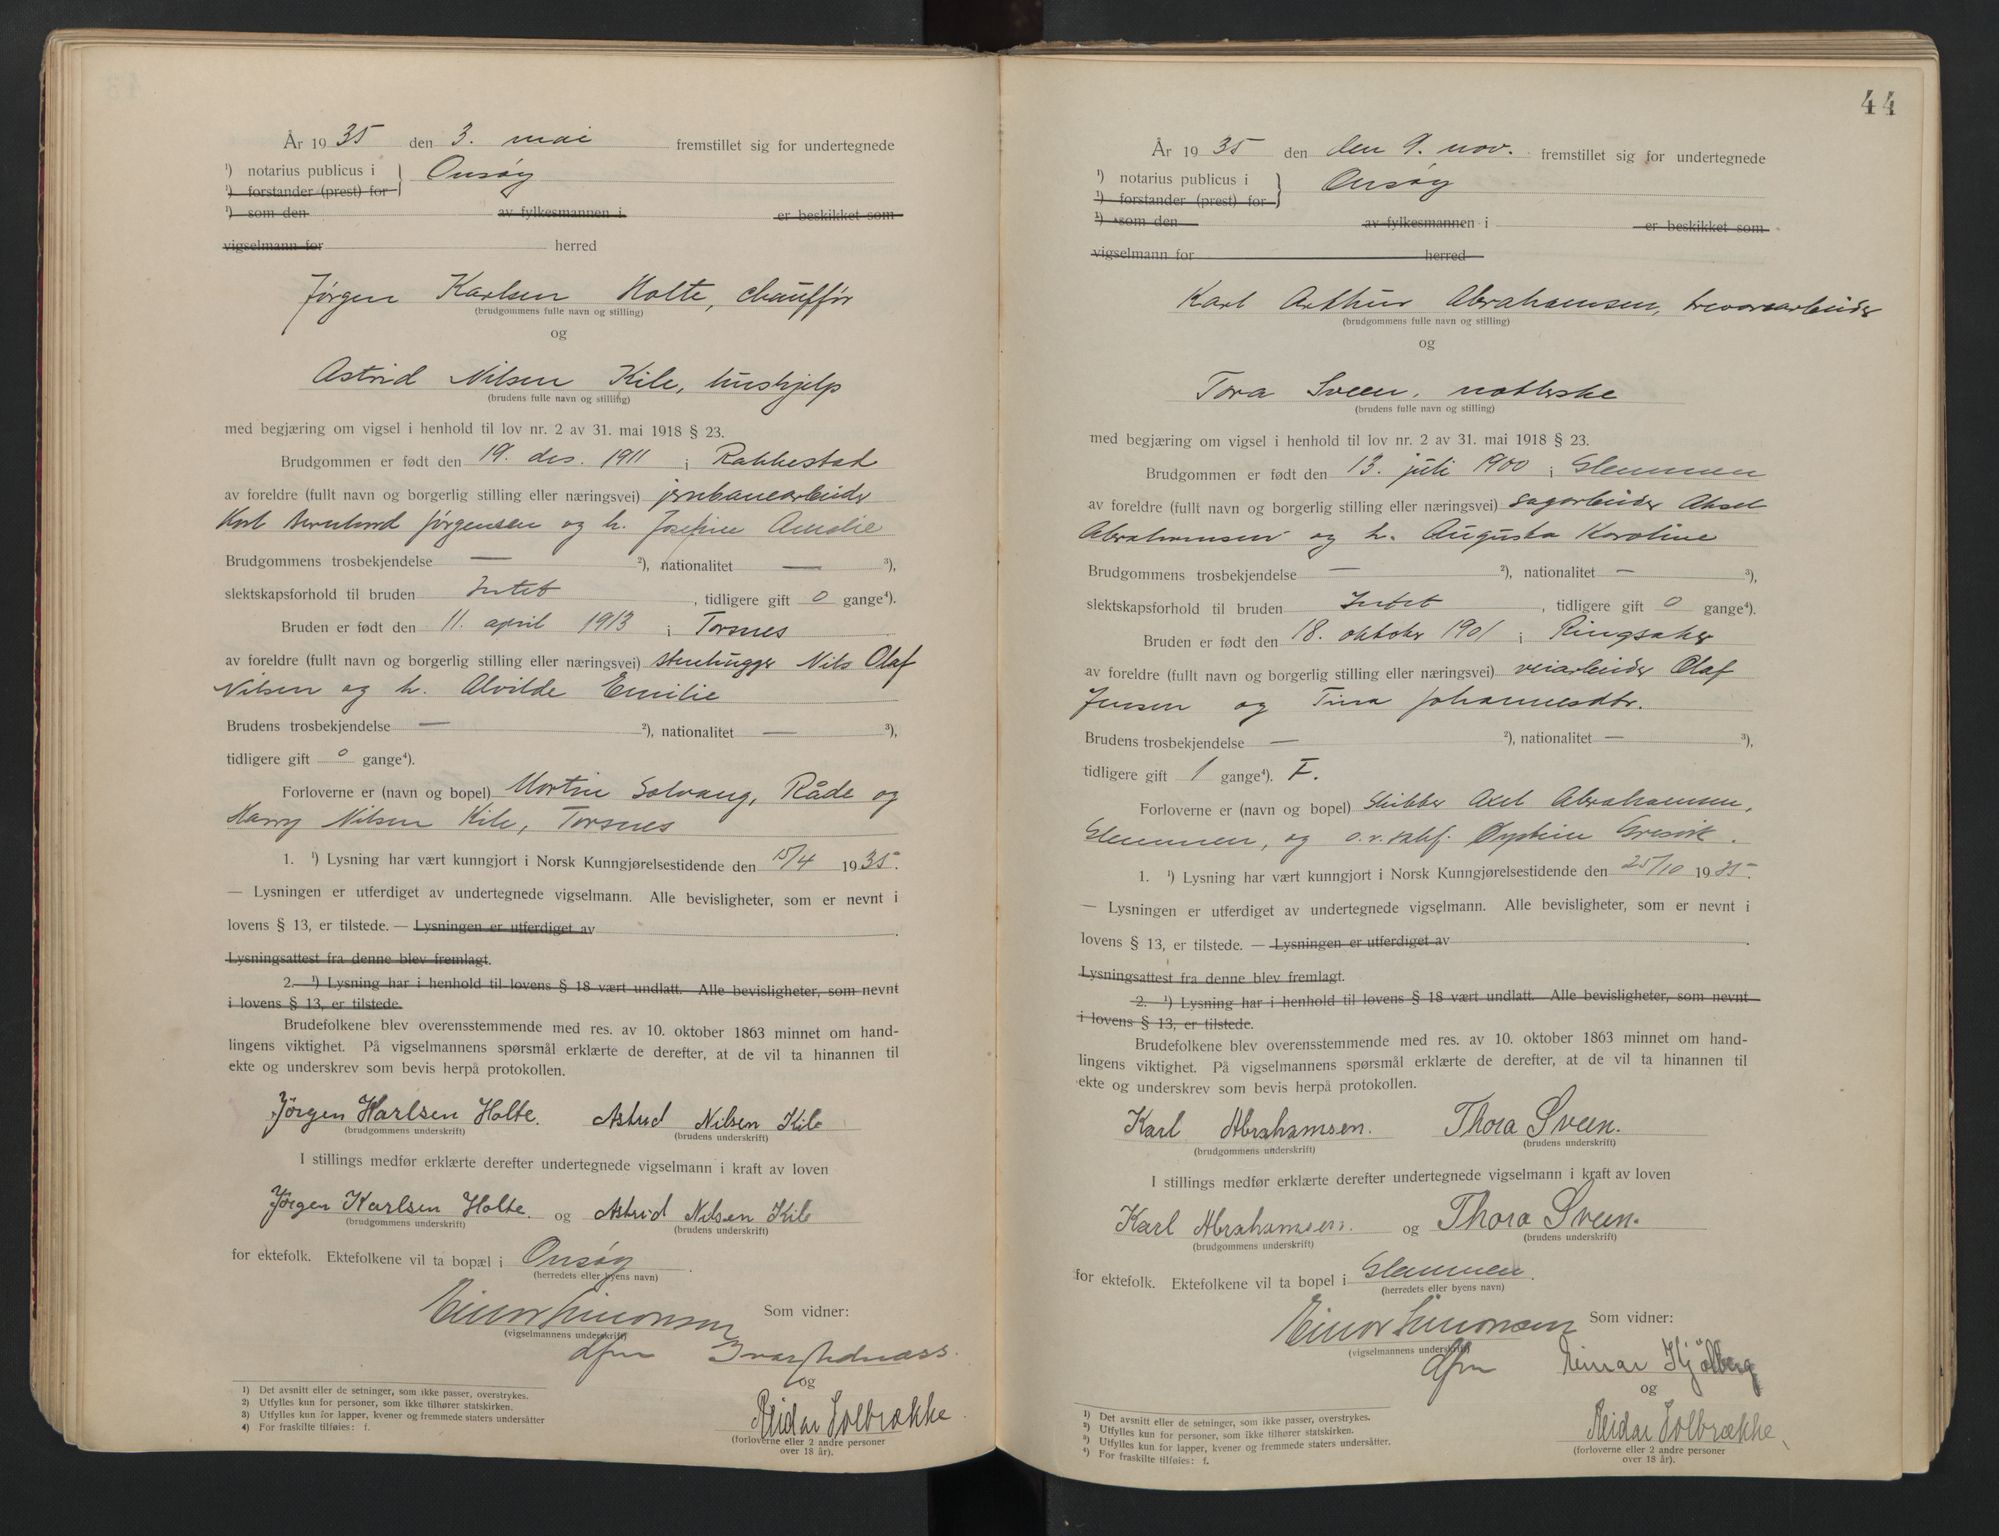 År 1935 den 3. mai fremstillet sig for undertegnede
¹) notarius publicus i } Onsøy
¹) forstander (prest) for
¹) som den av fylkesmannen i er beskikket som
vigselmann for herred
Jørgen Karlsen Holte, chauffør
(brudgommens fulle navn og stilling)
og
Astrid Nilsen Kile, hushjelp
(brudens fulle navn og stilling)
med begjæring om vigsel i henhold til lov nr. 2 av 31. mai 1918 § 23.
Brudgommen er født den 19. des. 1911 i Rakkestad
av foreldre (fullt navn og borgerlig stilling eller næringsvei) jernbanearbeider
Karl Bernhard Jørgensen og h. Josefine Amalie
Brudgommens trosbekjendelse — ²), nationalitet — ³),
slektskapsforhold til bruden Intet, tidligere gift 0 gange⁴).
Bruden er født den 11. april 1913 i Torsnes
av foreldre (fullt navn og borgerlig stilling eller næringsvei) stenhugger Nils Olaf
Nilsen og h. Alvilde Emilie
Brudens trosbekjendelse — ²), nationalitet — ³),
tidligere gift 0 gange⁴).
Forloverne er (navn og bopel) Martin Solvang, Råde og
Harry Nilsen Kile, Torsnes
1. ¹) Lysning har vært kunngjort i Norsk Kunngjørelsestidende den 15/4 1935.
— Lysningen er utferdiget av undertegnede vigselmann. Alle bevisligheter, som er nevnt i
lovens § 13, er tilstede. — Lysningen er utferdiget av .
Lysningsattest fra denne blev fremlagt.
2. ¹) Lysning har i henhold til lovens § 18 vært undlatt. Alle bevisligheter, som nevnt
i lovens § 13, er tilstede.
Brudefolkene blev overensstemmende med res. av 10. oktober 1863 minnet om hand-
lingens viktighet. På vigselmannens spørsmål erklærte de derefter, at de vil ta hinannen til
ekte og underskrev som bevis herpå protokollen.
Jørgen Karlsen Holte. Astrid Nilsen Kile
(brudgommens underskrift) (brudens underskrift)
I stillings medfør erklærte derefter undertegnede vigselmann i kraft av loven
Jørgen Karlsen Holte. og Astrid Nilsen Kile
(brudgommens underskrift) (brudens underskrift)
for ektefolk. Ektefolkene vil ta bopæl i Onsøy
(herredets eller byens navn)
Einar Simonsen Som vidner:
(vigselmannens underskrift)
dfm Ivar
og
Reidar Solbrække
(forloverne eller 2 andre personer
over 18 år).
1) Det avsnitt eller de setninger, som ikke passer, overstrykes.
2) Utfylles kun for personer, som ikke tilhører statskirken.
3) Utfylles kun for lapper, kvener og fremmede staters undersåtter
4) For fraskilte tilføies: f.
44
År 1935 den den 9. nov. fremstillet sig for undertegnede
¹) notarius publicus i } Onsøy
¹) forstander (prest) for
¹) som den av fylkesmannen i er beskikket som
vigselmann for herred
Karl Arthur Abrahamsen, trevarearbeider
(brudgommens fulle navn og stilling)
og
Tora Sveen,
(brudens fulle navn og stilling)
med begjæring om vigsel i henhold til lov nr. 2 av 31. mai 1918 § 23.
Brudgommen er født den 13. juli 1900 i Glemmen
av foreldre (fullt navn og borgerlig stilling eller næringsvei) sagarbeider Aksel
Abrahamsen og h. Augusta Karoline
Brudgommens trosbekjendelse — ²), nationalitet — ³),
slektskapsforhold til bruden Intet, tidligere gift 0 gange⁴).
Bruden er født den 18. oktober 1901 i Ringsaker
av foreldre (fullt navn og borgerlig stilling eller næringsvei) veiarbeider Olaf
Jensen og Tina Johannesdtr.
Brudens trosbekjendelse — ²), nationalitet — ³),
tidligere gift 1 gange⁴). F.
Forloverne er (navn og bopel) Skibber Axel Abrahamsen,
Glemmen, og o.r.sakf. Øystein Gresvik.
1. ¹) Lysning har vært kunngjort i Norsk Kunngjørelsestidende den 25/10 1935.
— Lysningen er utferdiget av undertegnede vigselmann. Alle bevisligheter, som er nevnt i
lovens § 13, er tilstede. — Lysningen er utferdiget av .
Lysningsattest fra denne blev fremlagt.
2. ¹) Lysning har i henhold til lovens § 18 vært undlatt. Alle bevisligheter, som nevnt
i lovens § 13, er tilstede.
Brudefolkene blev overensstemmende med res. av 10. oktober 1863 minnet om hand-
lingens viktighet. På vigselmannens spørsmål erklærte de derefter, at de vil ta hinannen til
ekte og underskrev som bevis herpå protokollen.
Karl Abrahamsen. Thora Sveen.
(brudgommens underskrift) (brudens underskrift)
I stillings medfør erklærte derefter undertegnede vigselmann i kraft av loven
Karl Abrahamsen. og Thora Sveen.
(brudgommens underskrift) (brudens underskrift)
for ektefolk. Ektefolkene vil ta bopel i Glemmen.
(herredets eller byens navn)
Einar Simonsen Som vidner:
(vigselmannens underskrift)
dfm Reinar Kjølberg
og
Reidar Solbrække
(forloverne eller 2 andre personer
over 18 år).
1) Det avsnitt eller de setninger, som ikke passer, overstrykes.
2) Utfylles kun for personer, som ikke tilhører statskirken.
3) Utfylles kun for lapper, kvener og fremmede staters undersåtter.
4) For fraskilte tilføies: f.